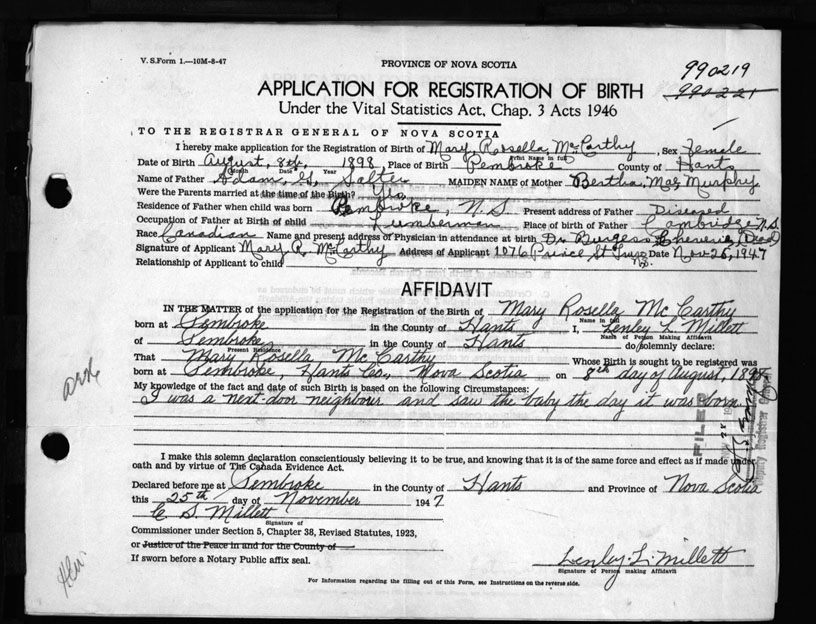 V. S. Form 1.—10M-8-47
PROVINCE OF NOVA SCOTIA
990219
990221
APPLICATION FOR REGISTRATION OF BIRTH
Under the Vital Statistics Act, Chap. 3 Acts 1946
TO THE REGISTRAR GENERAL OF NOVA SCOTIA
I hereby make application for the Registration of Birth of Mary, Rosella, McCarthy, Sex Female
Print Name in full
Date of Birth August, 8th, 1898, Place of Birth Pembroke County of Hants
Month Date Year
Name of Father Adam, Salter MAIDEN NAME of Mother Bertha, Mae, Murphy
Were the Parents married at the time of the Birth? Yes
Residence of Father when child was born Pembroke, N.S. Present address of Father Diseased
Occupation of Father at Birth of child Lumberman Place of birth of Father Cambridge N.S.
Race Canadian Name and present address of Physician in attendance at birth Dr Burgess, Cheverie, (Dead)
Signature of Applicant Mary R. McCarthy Address of Applicant 1076 Prince St Truro N.S. Date Nov 25, 1947
Relationship of Applicant to child
AFFIDAVIT
IN THE MATTER of the application for the Registration of the Birth of Mary Rosella McCarthy
Name in full
born at Pembroke in the County of Hants I, Lenley L. Millett
Name of Person Making Affidavit
of Pembroke in the County of Hants do solemnly declare:
Present Residence
That Mary Rosella McCarthy Whose Birth is sought to be registered was
born at Pembroke, Hants Co., Nova Scotia on 8th day of August, 1898
My knowledge of the fact and date of such Birth is based on the following Circumstances:
I was a next-door neighbour and saw the baby the day it was born.
FILED
Deputy Registrar General
I make this solemn declaration conscientiously believing it to be true, and knowing that it is of the same force and effect as if made under
oath and by virtue of The Canada Evidence Act.
Declared before me at Pembroke in the County of Hants and Province of Nova Scotia
this 25th day of November 1947
C S Millett
Signature of
Commissioner under Section 5, Chapter 38, Revised Statutes, 1923,
or Justice of the Peace in and for the County of
If sworn before a Notary Public affix seal.
Lenley L. Millett
Signature of Person making Affidavit
For Information regarding the filling out of this Form, see Instructions on the reverse side.